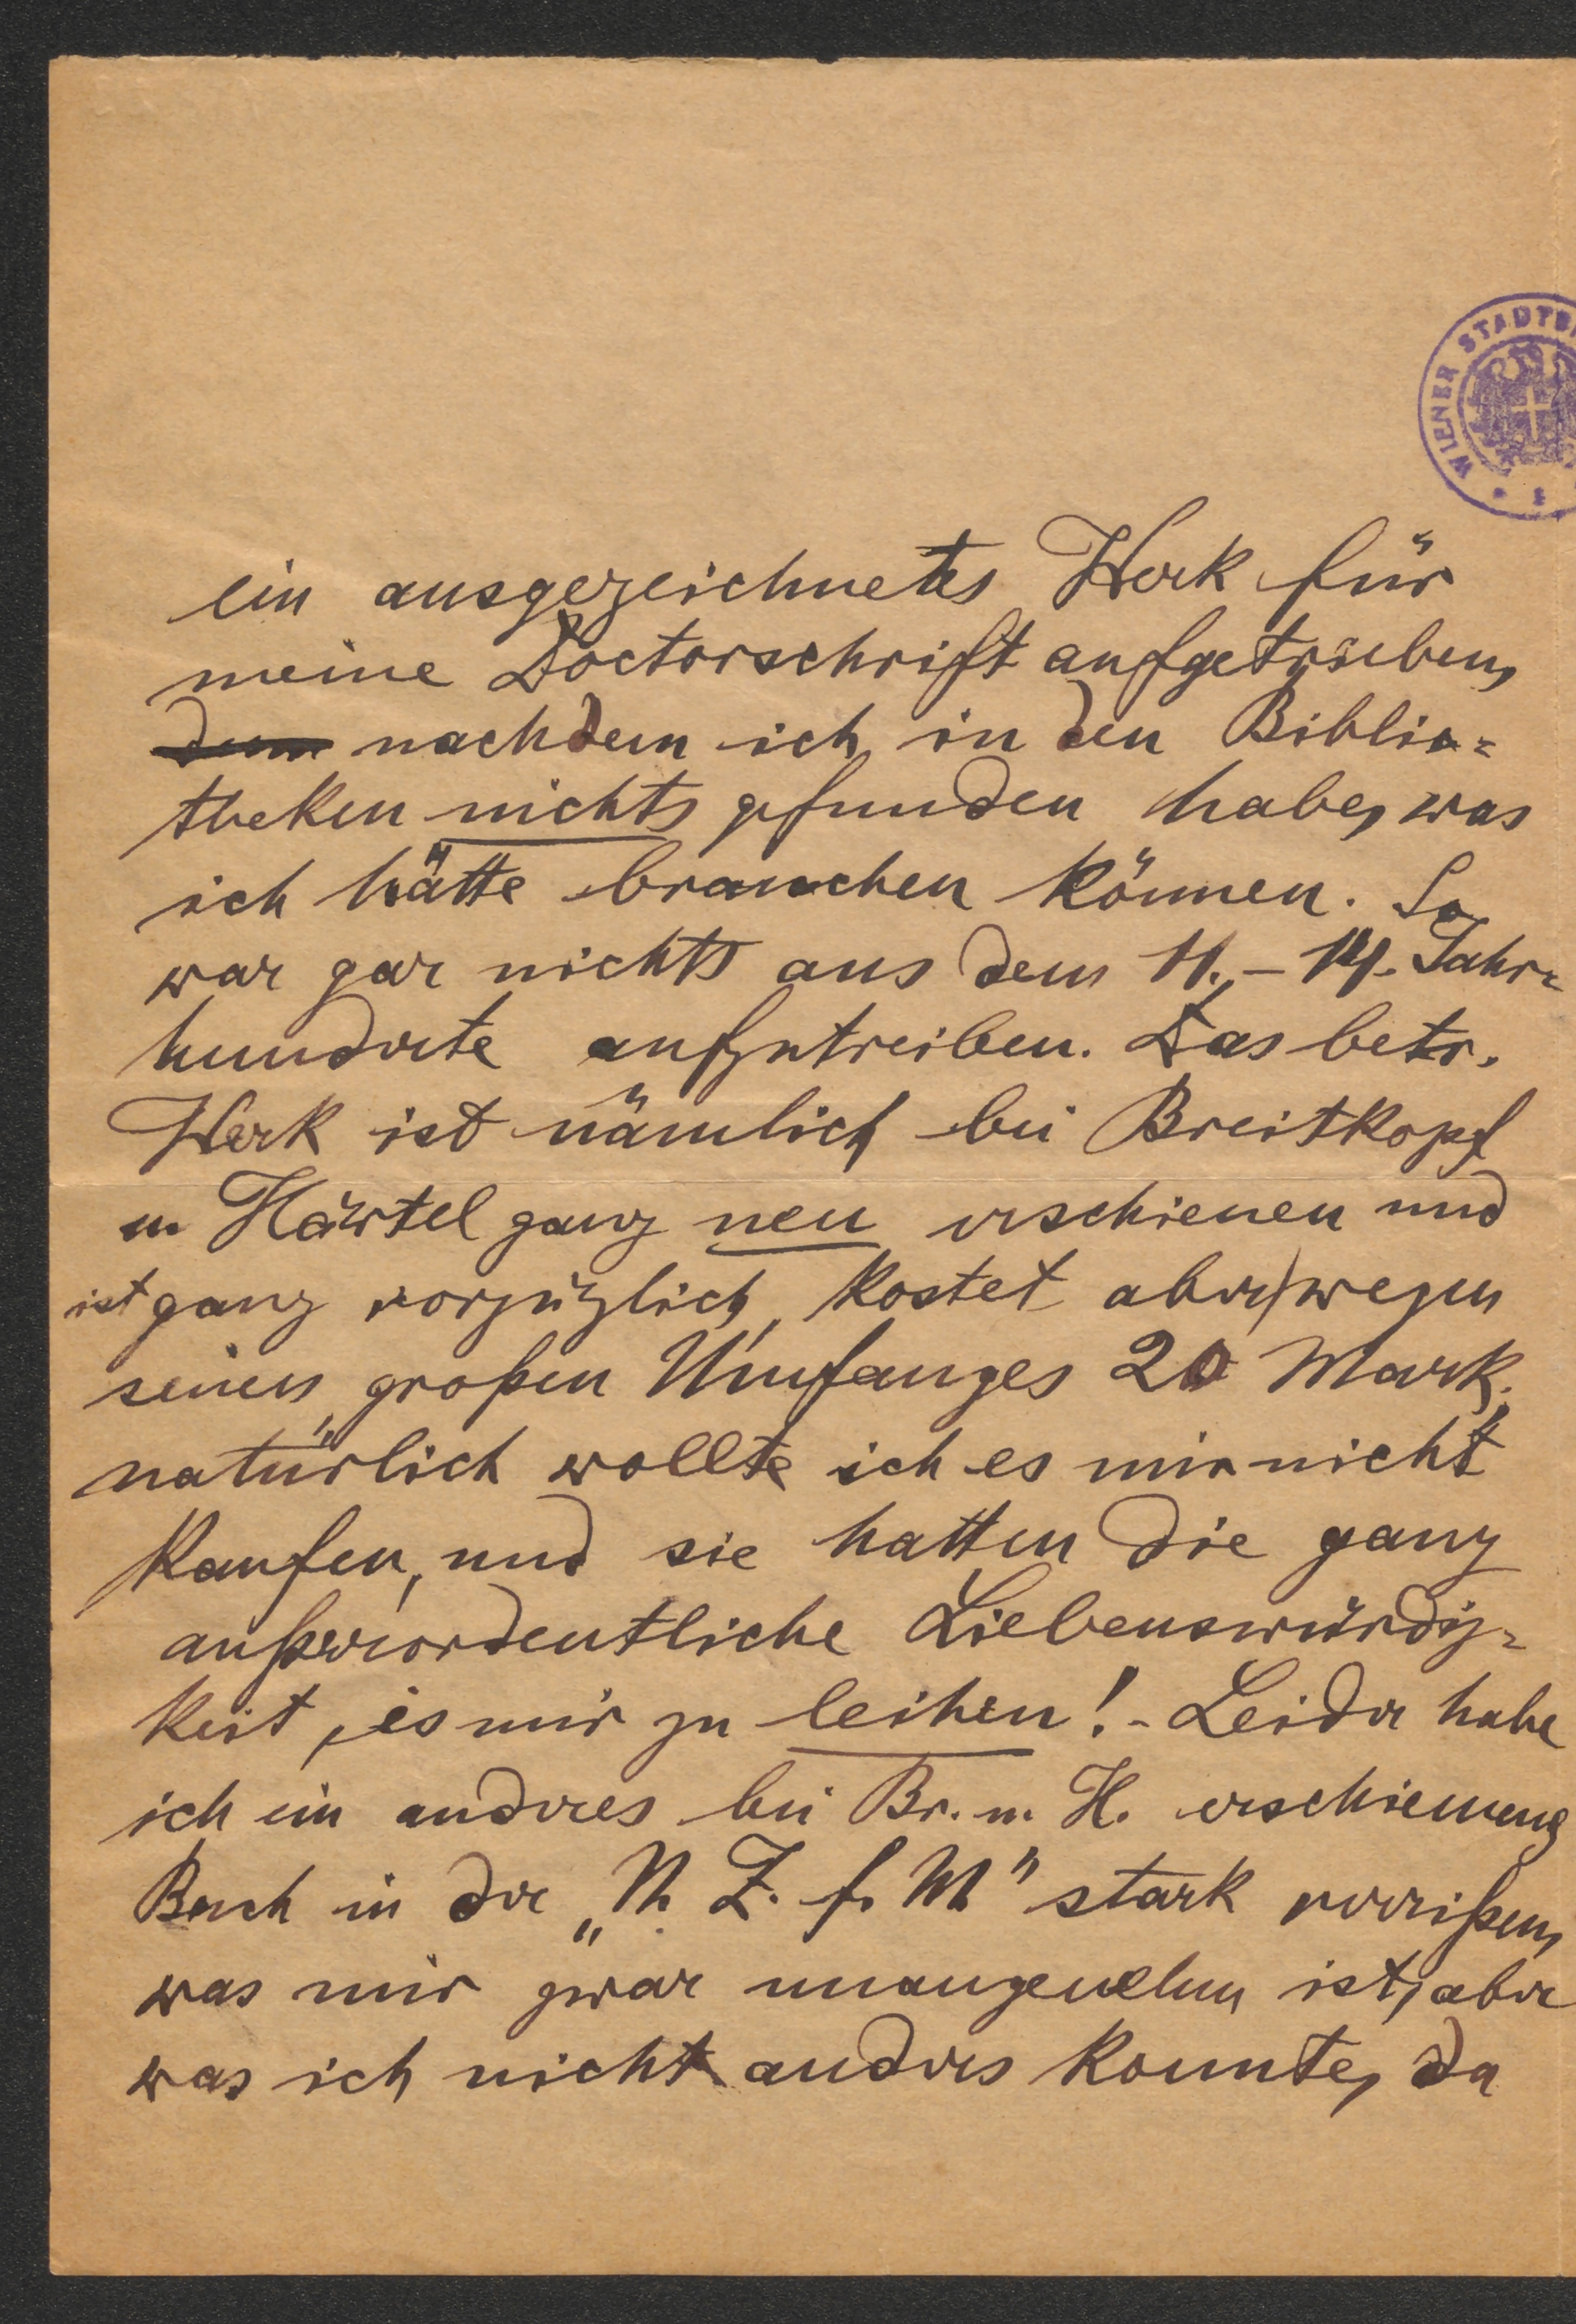 WIENER STADTB
ein ausgezeichnetes Werk für
meine Doctorschrift aufgetrieben,
denn nachdem ich in den Biblio=
theken nichts gefunden habe, was
ich hätte brauchen können. So
war gar nichts aus dem 11.–14. Jahr=
hunderte aufzutreiben. Das betr.
Werk ist nämlich bei Breitkopf
u Härtel ganz neu erschienen und
ist ganz vorzüglich, kostet aber wegen
seines großen Umfanges 20 Mark.
natürlich wollte ich es mir nicht
kaufen, und sie hatten die ganz
außerordentliche Liebenswürdig=
keit, es mir zu leihen! – Leider habe
ich ein anderes bei Br. u. H. erschienenes
Buch in der „N. Z. f. M" stark verrißen,
was mir zwar unangenehm ist, aber
was ich nicht anders konnte, da